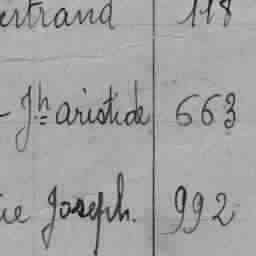 ertrand 118
- Jh aristide 663
ie Joseph. 992